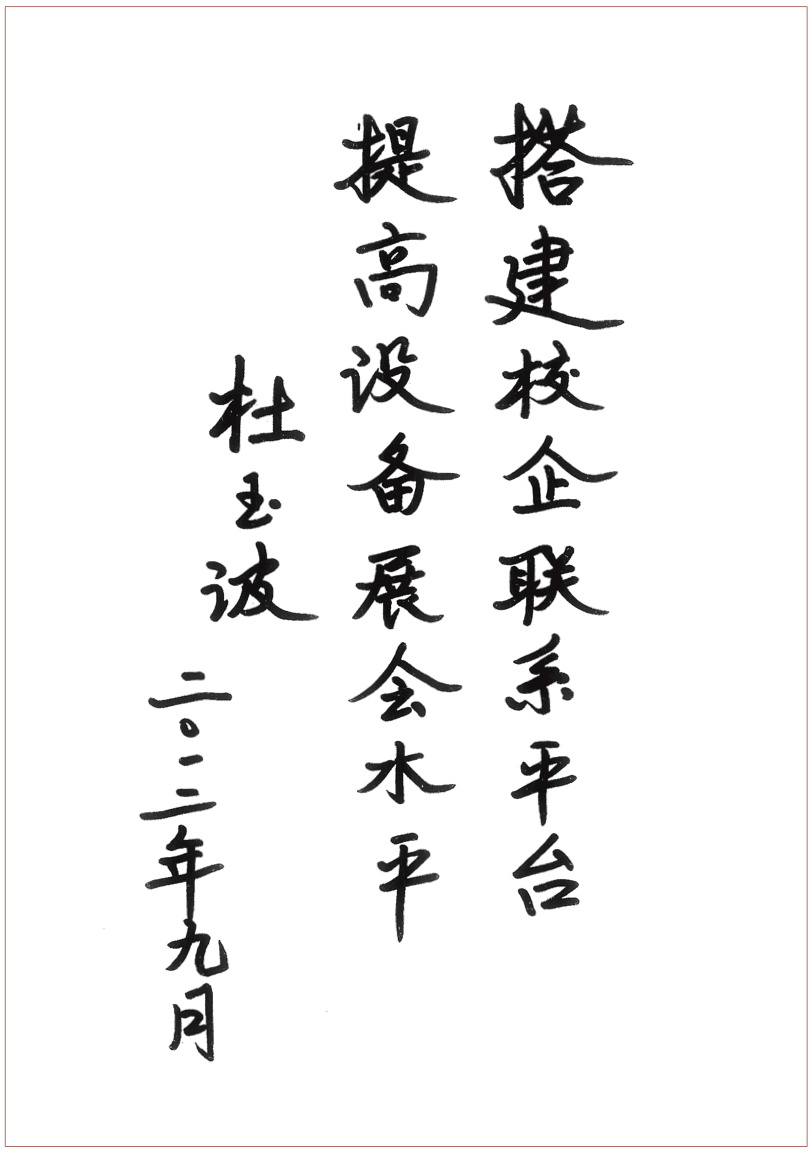 搭建校企联系平台
提高设备展会水平
杜玉波
二〇一二年九月